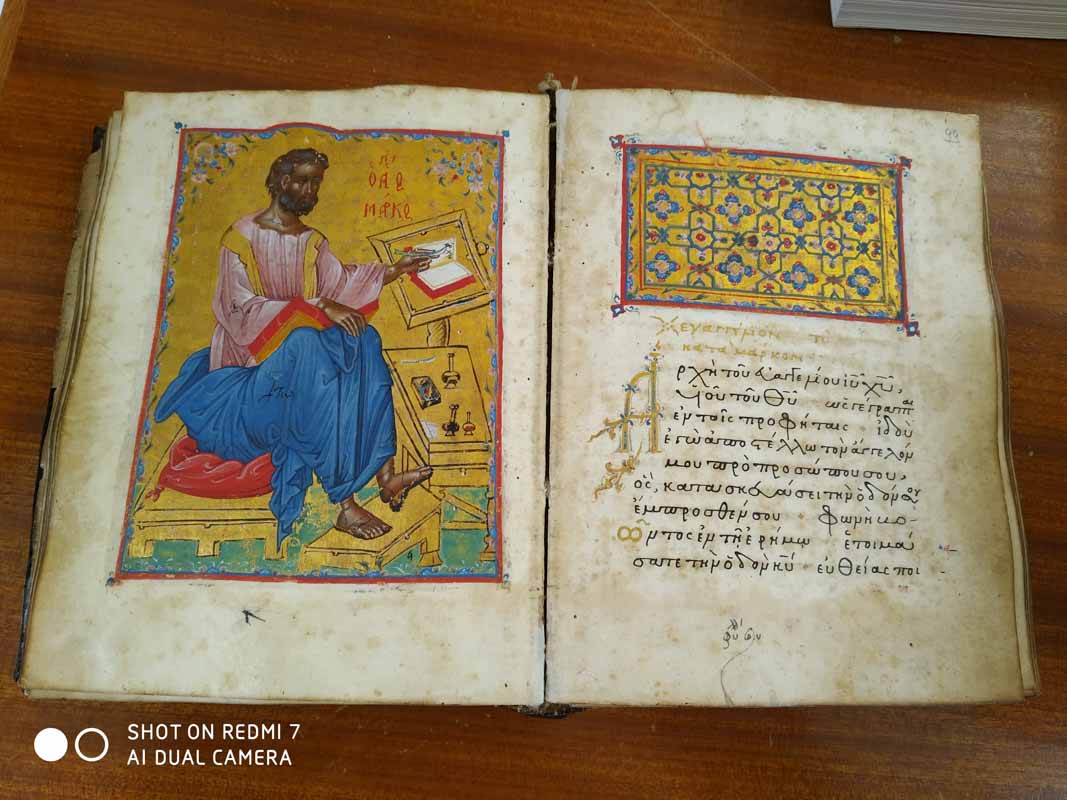 ΜΑΡΚΟ
99
ευαγγελιον
κατα μαρκον
Αρχὴ τοῦ ευαγγελίου ιῦ χῦ,
υἱοῦ τοῦ θῦ ὡς γέγραπται
ἐν τοῖς προφήταις ἰδοὺ
ἐγὼ ἀποστέλλω τὸν ἄγγελον
μου πρὸ προσώπου σου,
ὃς, κατασκευάσει τὴν ὁδόν σου
ἔμπροσθεν σου φωνὴ βο-
ῶντος ἐν τῇ ἐρήμω ἑτοιμά
σατε τὴν ὁδὸν κῦ εὐθείας ποι
SHOT ON REDMI 7
AI DUAL CAMERA